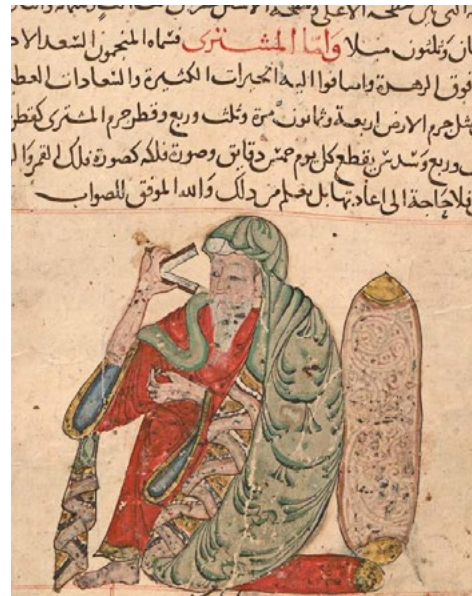 وثلثون ميلا وامّا المشترى فسماه المنجمون السّعد الا
فوق الزهرة واضافوا اليه الخيرات الكثيرة والسّعادات العظ
مثل جرم الارض اربعة وثمانون مرّة وثلث وربع وقطر جرم المشترى كقطر
وربع وسدس يقطع كل يوم خمس دقايق وصورة فلكه كصورة فلك القمر
فلا حاجة الى اعادتها بل يعلم من ذلك والله الموفق للصواب